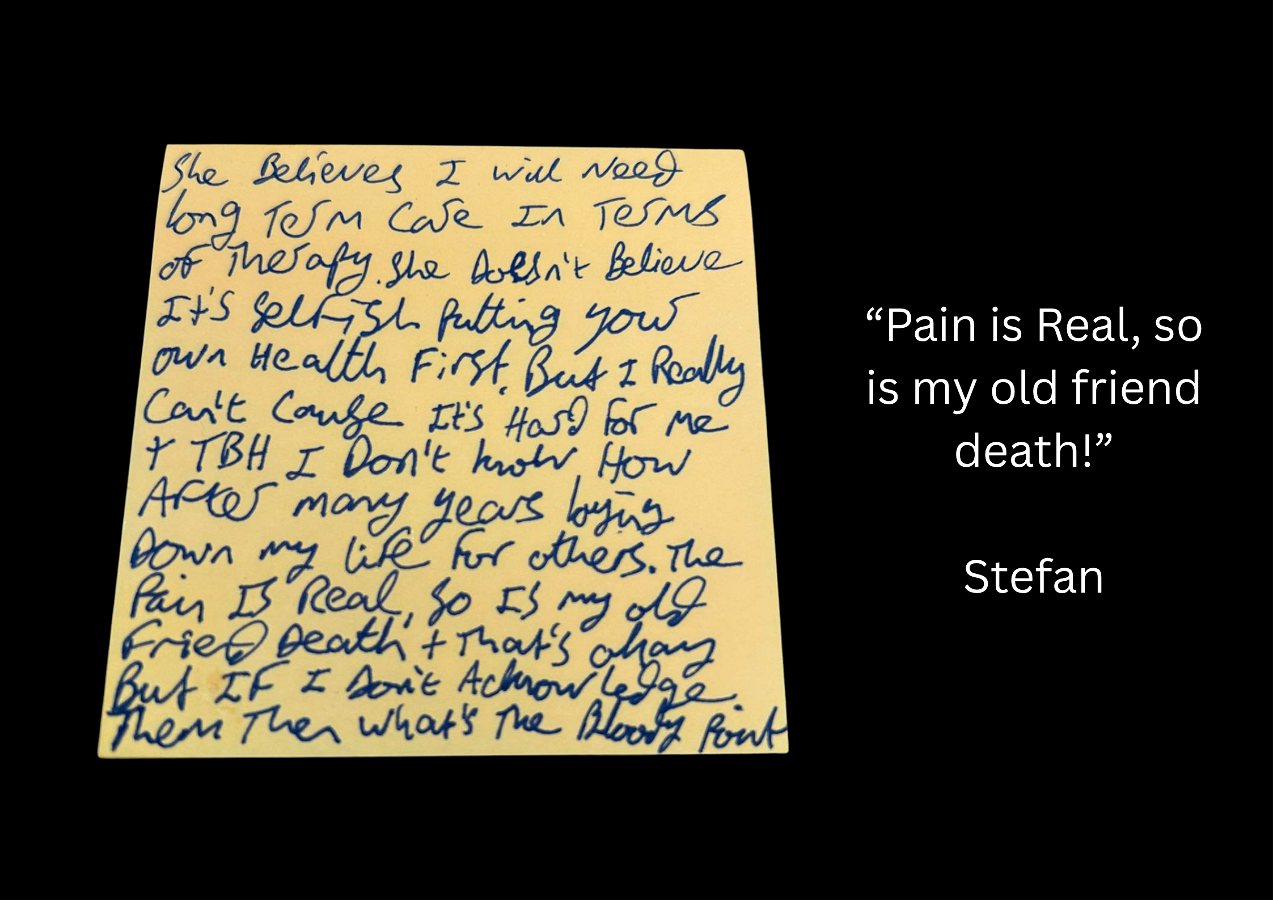 She Believes I will Need
long Term Care In Terms
of Therapy. She Doesn't Believe
It's Selfish putting your
own Health First. But I Really
Can't Cause It's Hard For me
+ TBH I Don't know How
After many years laying
Down my life For others. The
Pain Is Real, So Is my old
Friend Death + That's okay
But IF I Don't Acknowledge
Them Then what's The Bloody Point
“Pain is Real, so
is my old friend
death!”
Stefan